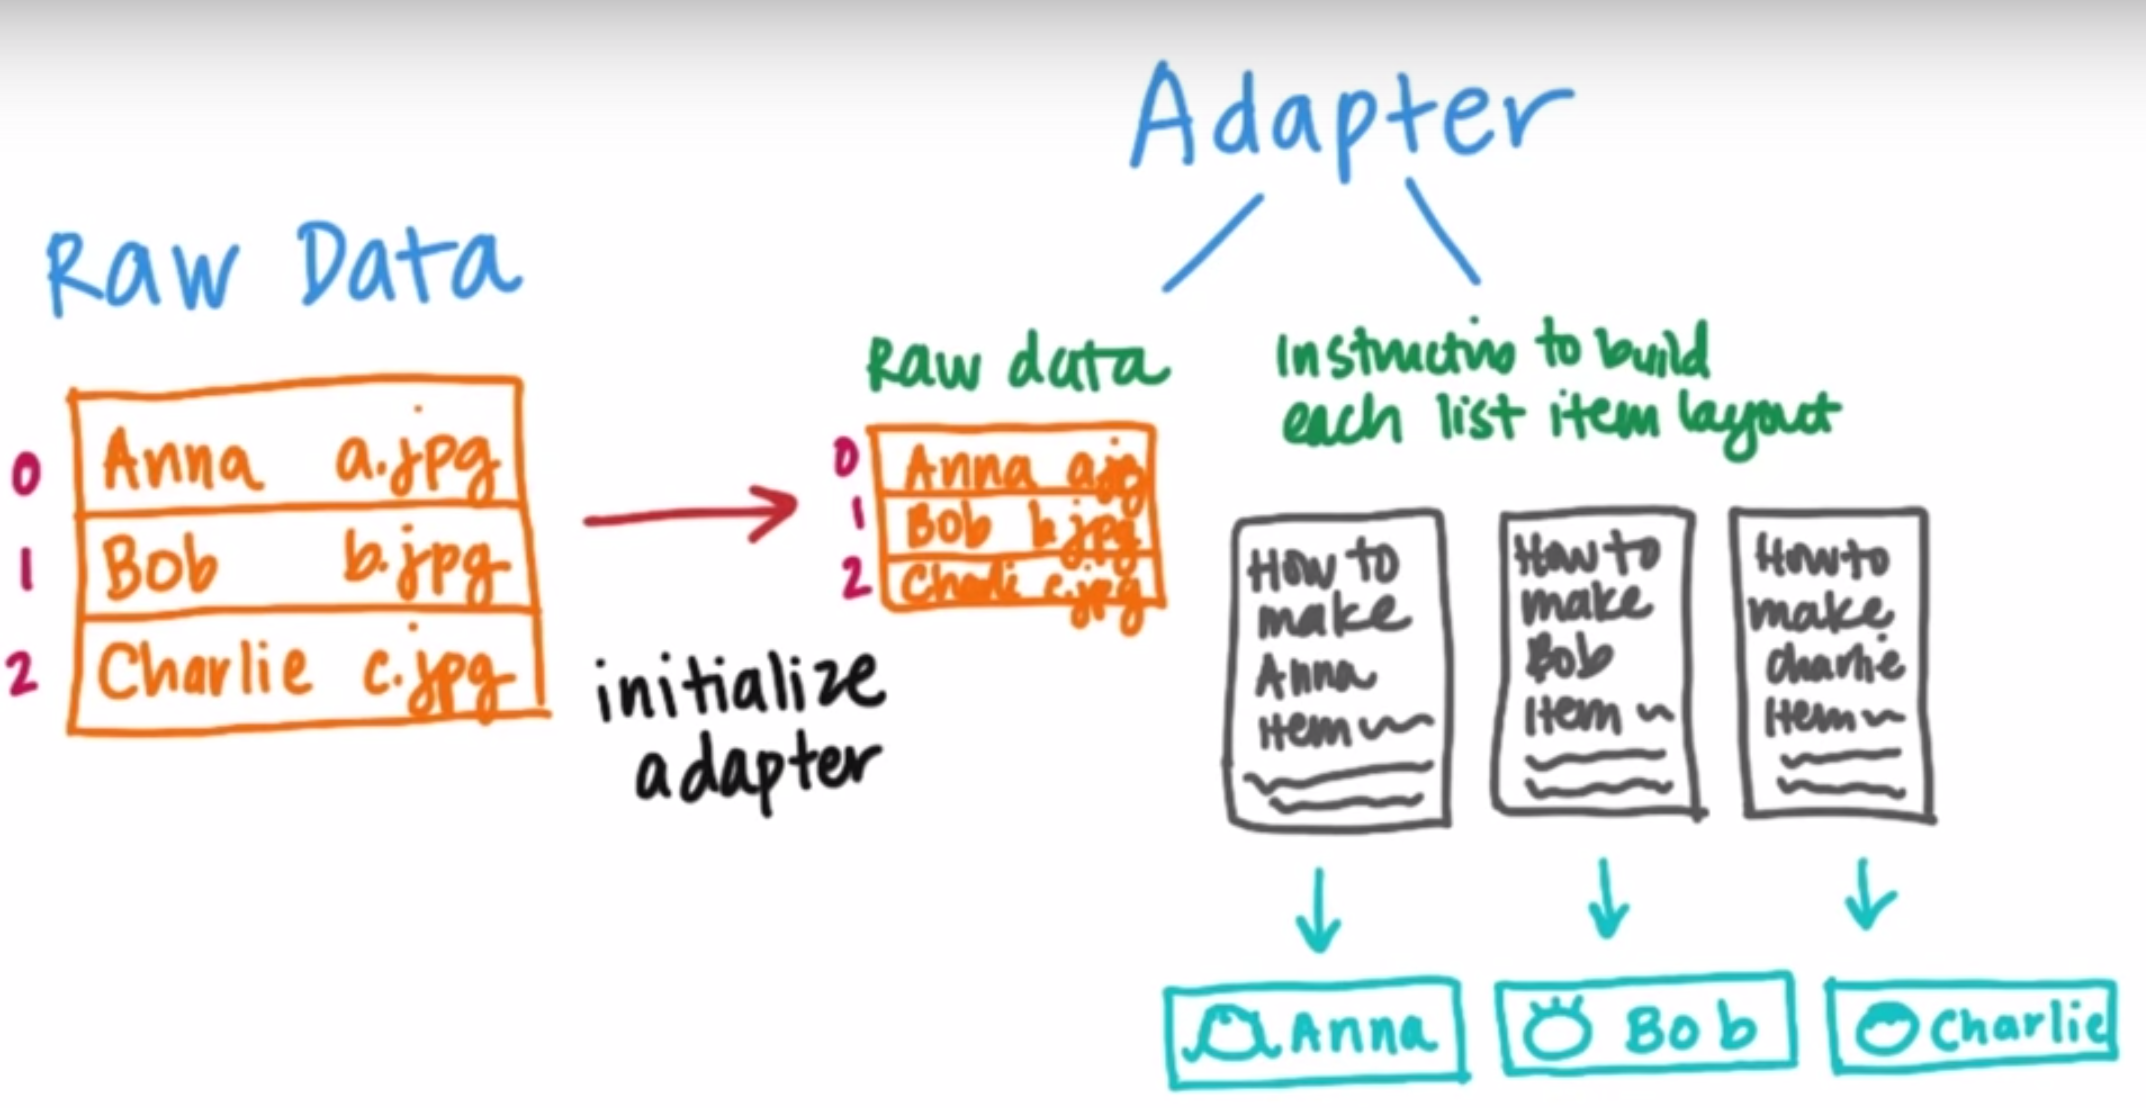 Adapter
Raw Data
0 Anna a.jpg
1 Bob b.jpg
2 Charlie c.jpg
initialize
adapter
Raw data
0 Anna a.jpg
1 Bob b.jpg
2 Charli c.jpg
Instructins to build
each list item layout
How to
make
Anna
item
How to
make
Bob
item
How to
make
charlie
item
Anna
Bob
Charlie